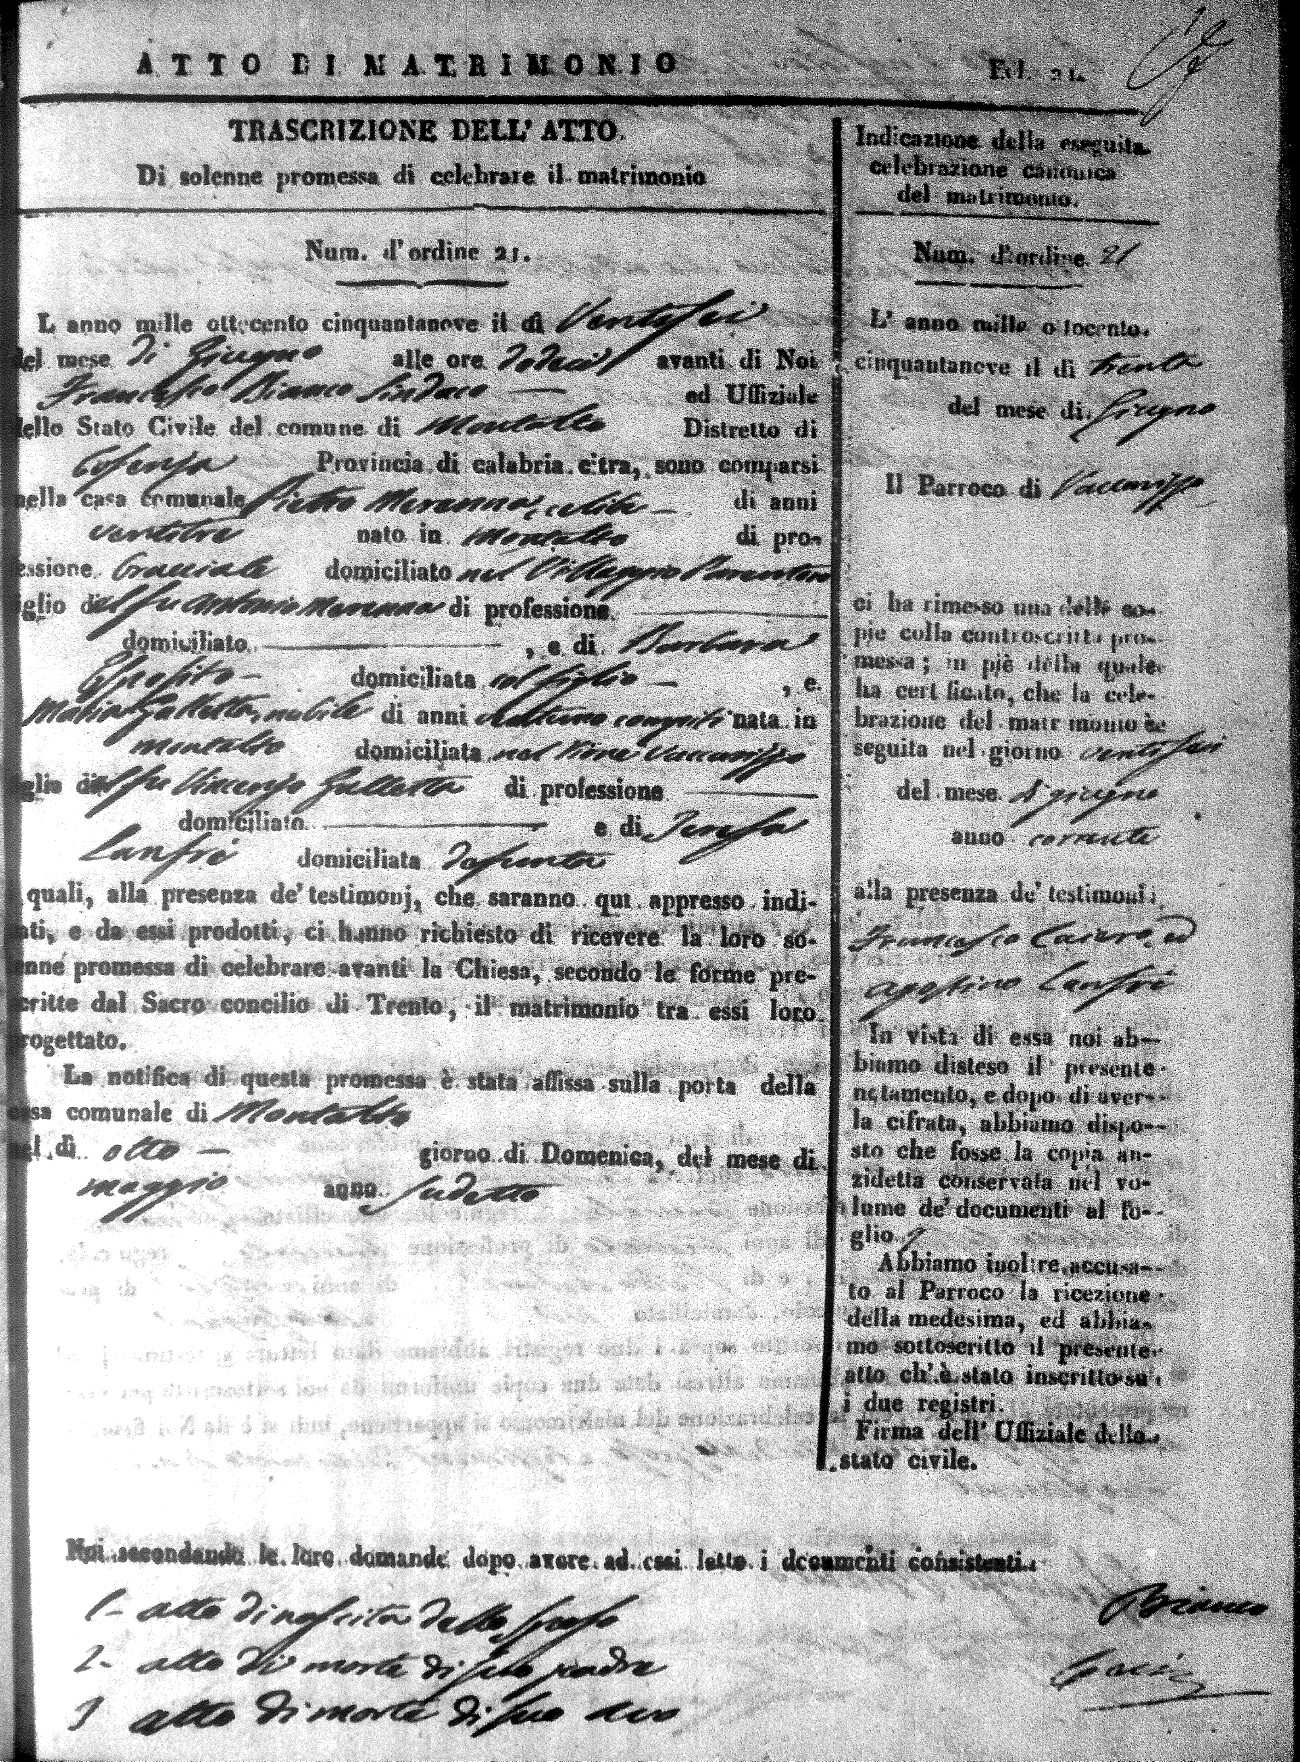 ATTO DI MATRIMONIO
Fol. 21.
TRASCRIZIONE DELL' ATTO.
Di solenne promessa di celebrare il matrimonio
Num. d'ordine 21.
L anno mille ottocento cinquantanove il dì Ventisei
del mese di Giugno alle ore dodeci avanti di Noi
Francesco Bianco Sindaco ed Uffiziale
dello Stato Civile del comune di Montalto Distretto di
Cosenza Provincia di calabria citra, sono comparsi
nella casa comunale Pietro Meranna, celibe di anni
ventitre nato in Montalto di pro-
essione Bracciale domiciliato nel Villaggio Parantoro
iglio del fu Antonio Meranna di professione
domiciliato , e di Barbara
Esposito domiciliata col figlio , e
Maria Galletta, nubile di anni ventuno compiti nata in
Montalto domiciliata nel Rione Vaccarizzo
glia del fu Vincenzo Galletta di professione
domiciliato e di Teresa
Lanfri domiciliata defunta
quali, alla presenza de' testimonj, che saranno qui appresso indi-
ati, e da essi prodotti, ci hanno richiesto di ricevere la loro so-
enne promessa di celebrare avanti la Chiesa, secondo le forme pre-
critte dal Sacro concilio di Trento, il matrimonio tra essi loro
rogettato.
La notifica di questa promessa è stata affissa sulla porta della
asa comunale di Montalto
nel dì otto giorno di Domenica, del mese di
maggio anno sudetto
Noi secondando le loro domande dopo avere ad essi letto i documenti consistenti
1- atto di nascita dello sposo
2- atto di morte di suo padre
3 atto di morte di suo avo
Indicazione della eseguita
celebrazione canonica
del matrimonio.
Num. d'ordine 21
L' anno mille ottocento
cinquantanove il dì trenta
del mese di Giugno
Il Parroco di Vaccarizzo
ci ha rimesso una delle co-
pie colla controscritta pro-
messa; in piè della quale
ha certificato, che la cele-
brazione del matrimonio è
seguita nel giorno ventisei
del mese di giugno
anno corrente
alla presenza de' testimoni
Francesco ed
Agostino Lanfri
In vista di essa noi ab-
biamo disteso il presente
notamento, e dopo di aver-
la cifrata, abbiamo dispo-
sto che fosse la copia an-
zidetta conservata nel vo-
lume de' documenti al fo-
glio
Abbiamo inoltre accusa-
to al Parroco la ricezione
della medesima, ed abbia-
mo sottoscritto il presente
atto ch' è stato inscritto su
i due registri.
Firma dell' Uffiziale dello
stato civile.
Bianco